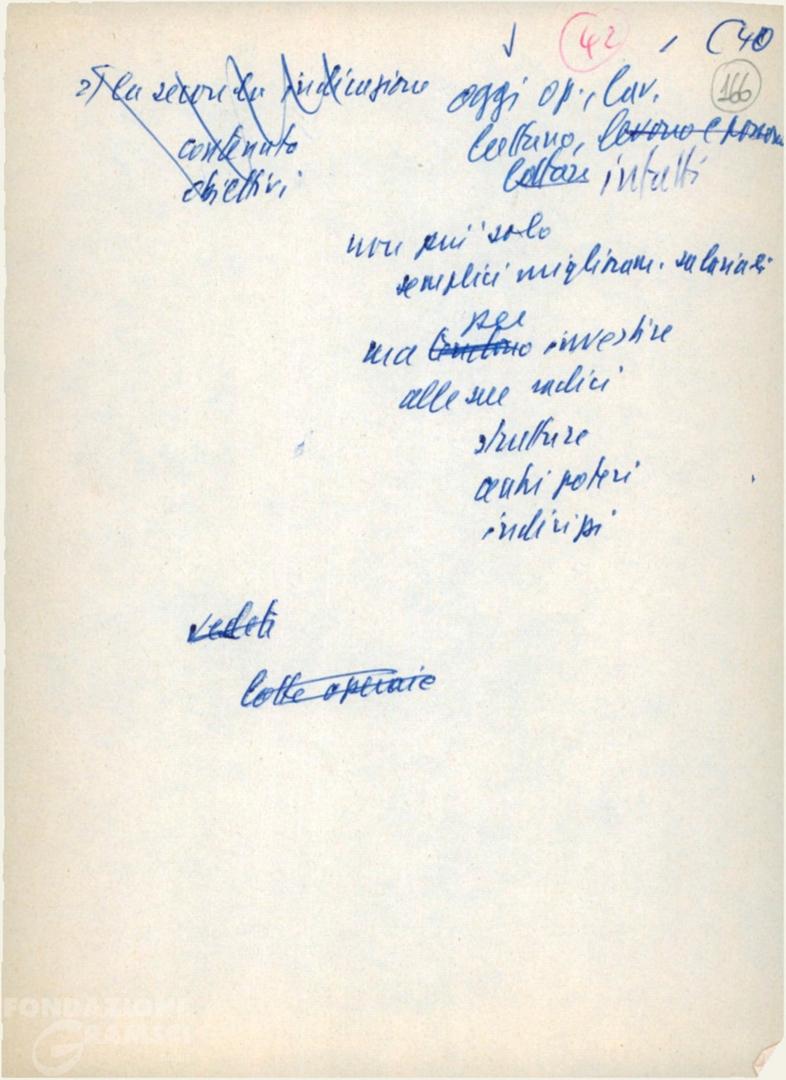 42
(40
166
2) la seconda indicazione
contenuto
obiettivi
oggi op., lav.
lottano, devono e possono
lottare infatti
non più solo
semplici miglioram. salariali
per
ma tendono investire
alle sue radici
strutture
centri poteri
indirizzi
vedete
lotte operaie
FONDAZIONE
GRAMSCI